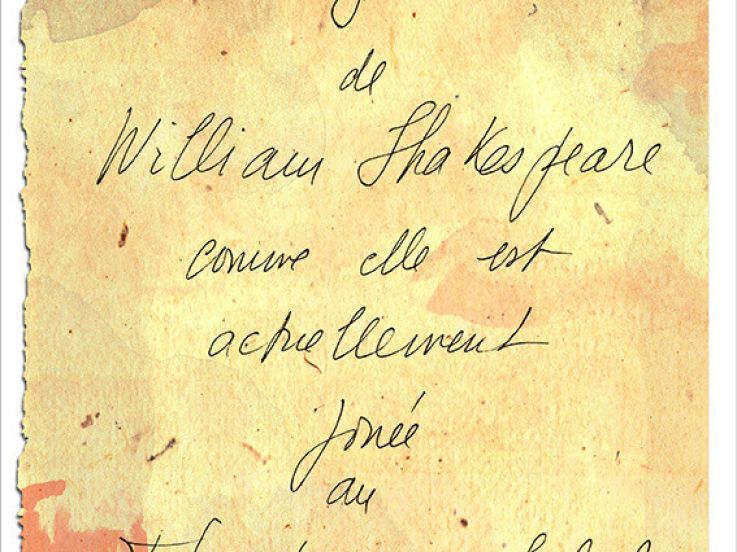 de
William Shakespeare
comme elle est
actuellement
jouée
au